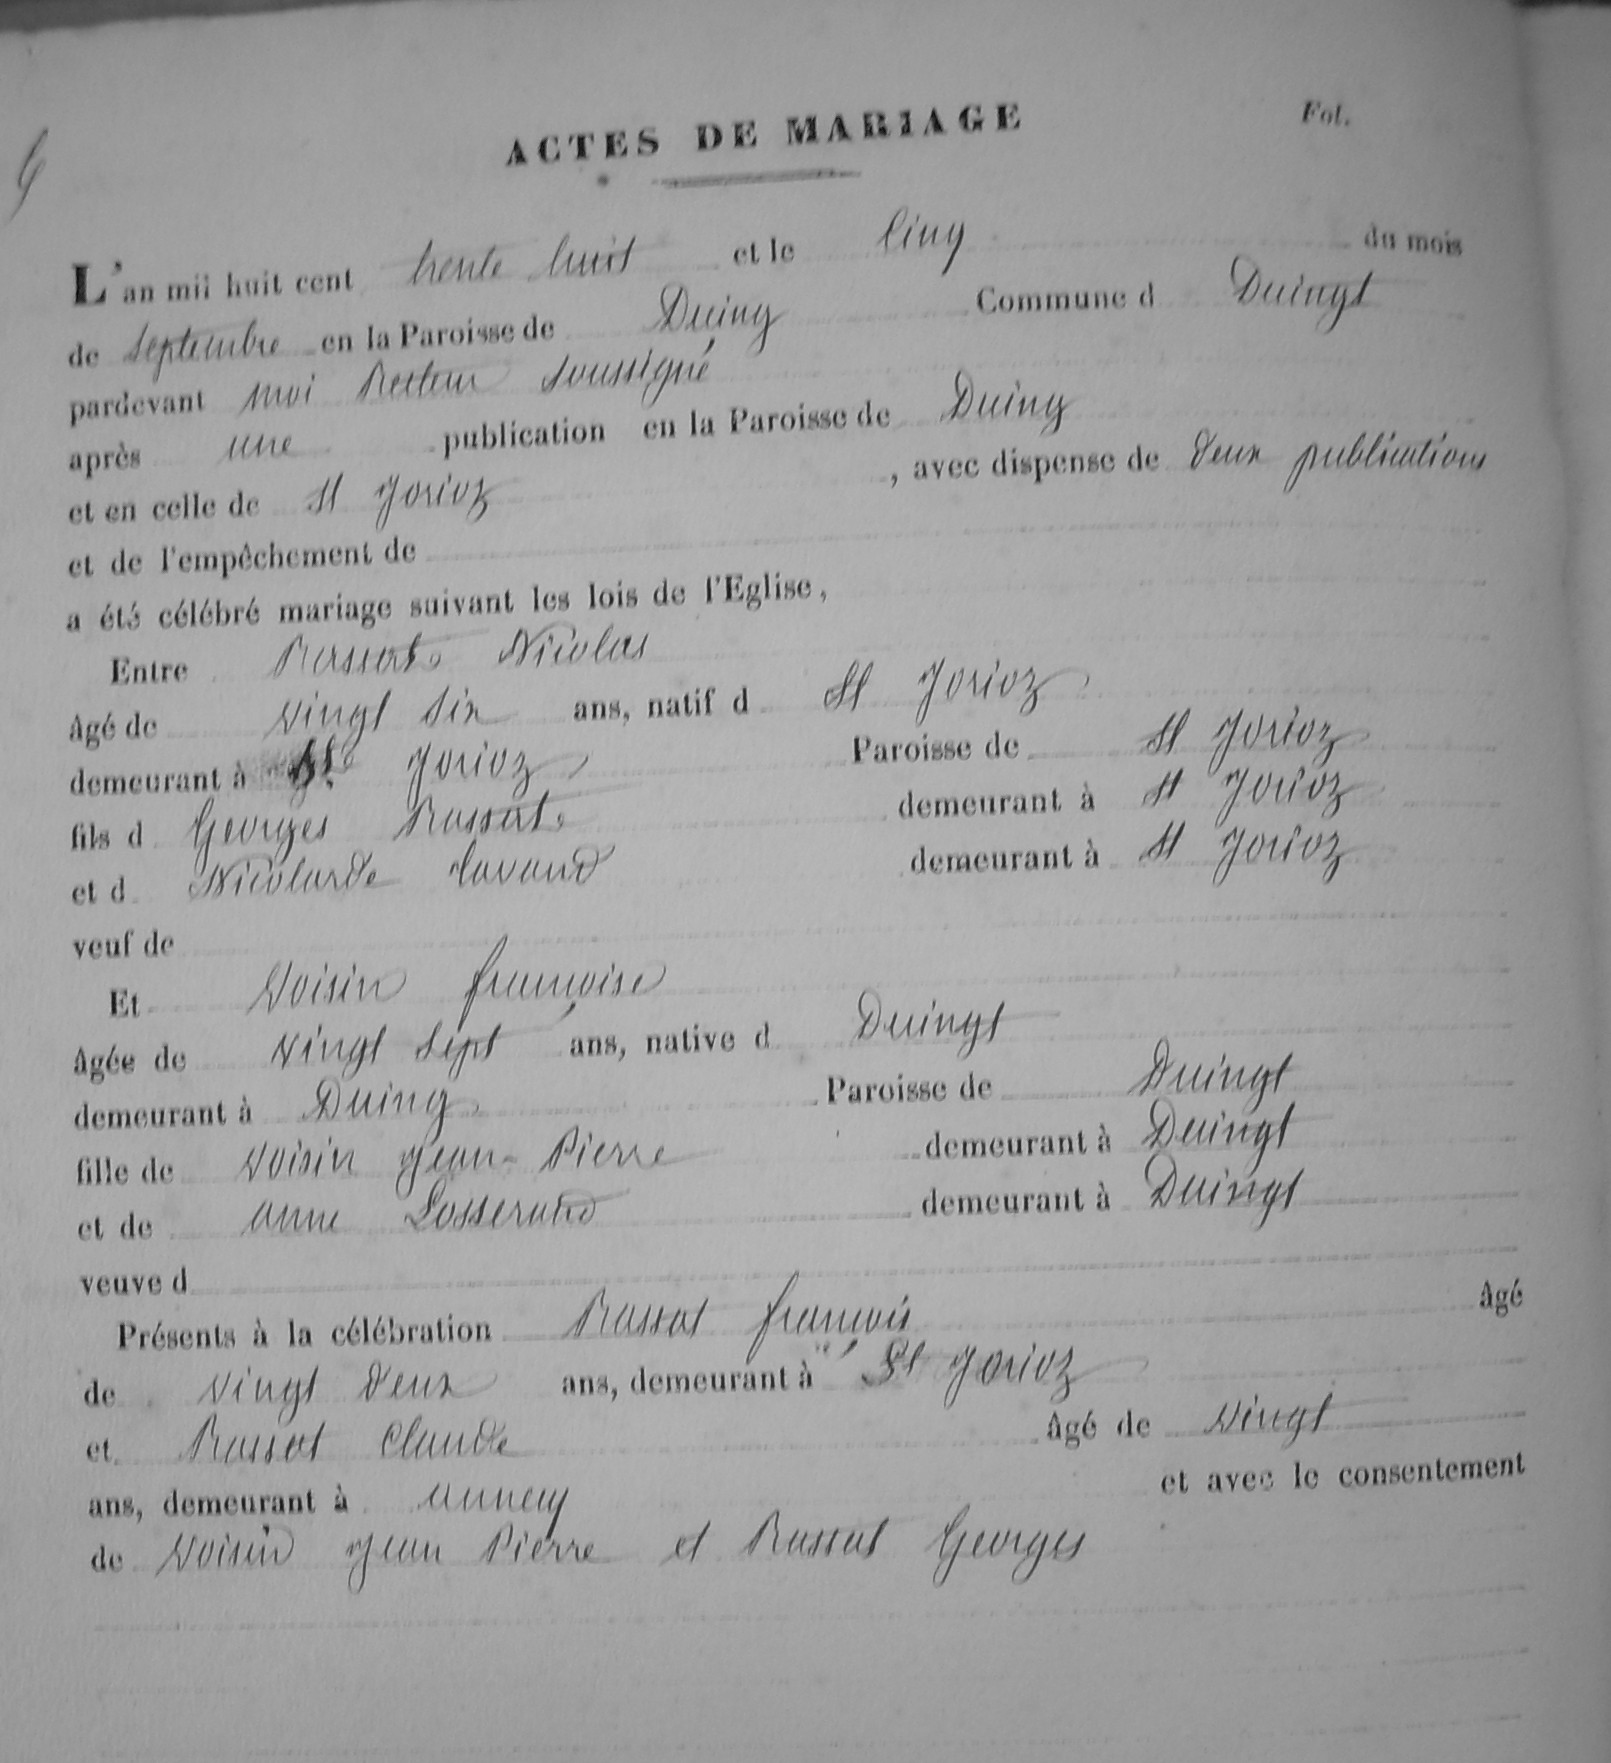 ACTES DE MARIAGE
Fol.
L'an mil huit cent trente huit et le Cinq du mois
de Septembre en la Paroisse de Duing Commune d Duingt
pardevant moi Recteur soussigné
après une publication en la Paroisse de Duing
et en celle de St Jorioz , avec dispense de deux publications
et de l'empêchement de
a été célébré mariage suivant les lois de l'Eglise,
Entre Rassat Nicolas
âgé de vingt six ans, natif d St Jorioz
demeurant à St Jorioz Paroisse de St Jorioz
fils d Georges Rassat demeurant à St Jorioz
et d Nicolarde Cavand demeurant à St Jorioz
veuf de
Et Voisin françoise
âgée de vingt sept ans, native d Duingt
demeurant à Duing Paroisse de Duingt
fille de Voisin Jean-Pierre demeurant à Duingt
et de anne Losserand demeurant à Duingt
veuve d
Présents à la célébration Rassat françois âgé
de vingt deux ans, demeurant à St Jorioz
et Rassat Claude âgé de vingt
ans, demeurant à annecy et avec le consentement
de Voisin Jean Pierre et Rassat Georges